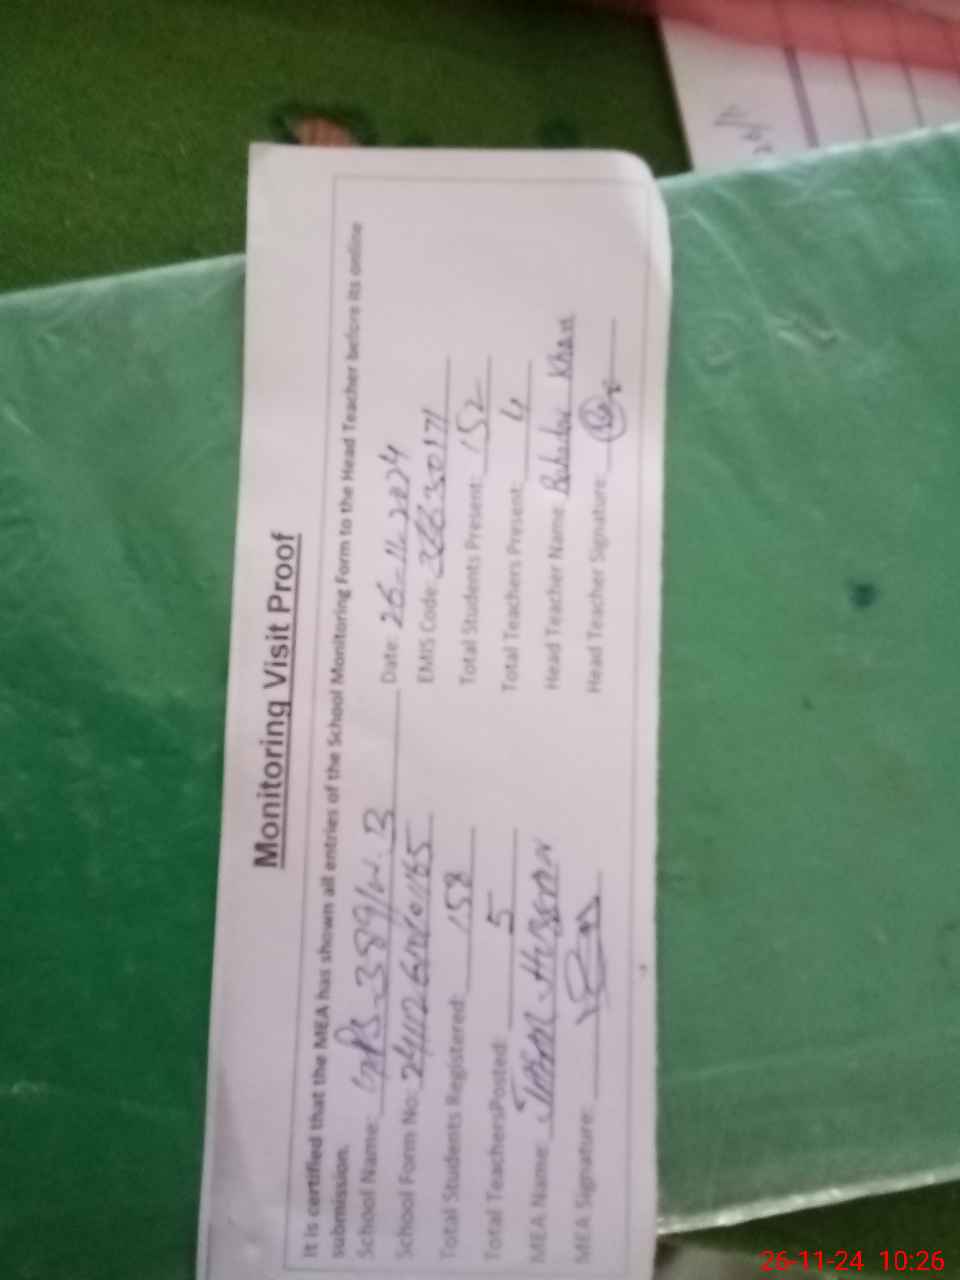 Monitoring Visit Proof
It is certified that the MEA has shown all entries of the School Monitoring Form to the Head Teacher before its online
submission.
School Name: GPS-389/W.B Date: 26-11-2024
School Form No: EMIS Code:
Total Students Registered: 158 Total Students Present: 152
Total TeachersPosted: 5 Total Teachers Present: 4
MEA Name Head Teacher Name Khan
MEA Signature: Head Teacher Signature:
26-11-24 10:26